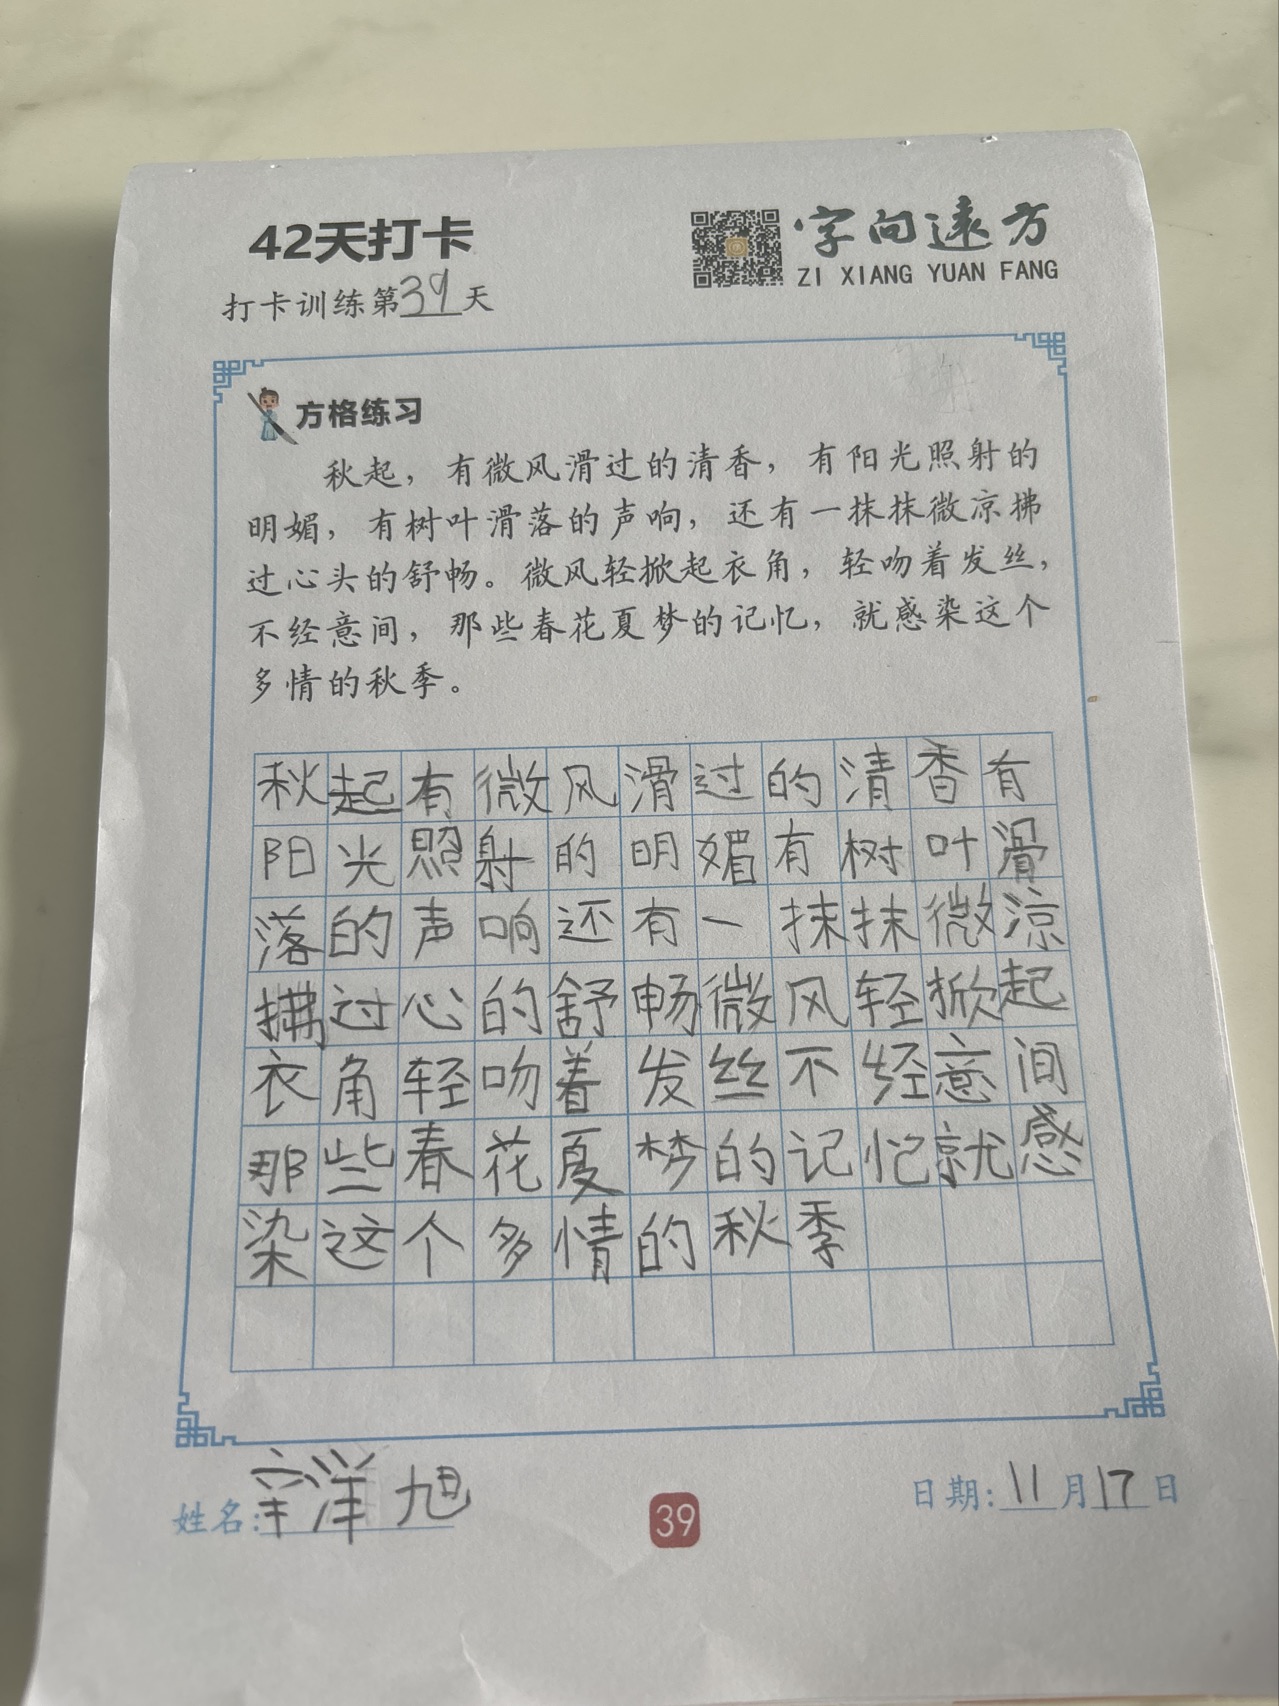 42天打卡
字向远方
ZI XIANG YUAN FANG
打卡训练第39天
方格练习
秋起，有微风滑过的清香，有阳光照射的
明媚，有树叶滑落的声响，还有一抹抹微凉拂
过心头的舒畅。微风轻掀起衣角，轻吻着发丝，
不经意间，那些春花夏梦的记忆，就感染这个
多情的秋季。
秋起有微风滑过的清香有
阳光照射的明媚有树叶滑
落的声响还有一抹抹微凉
拂过心的舒畅微风轻掀起
衣角轻吻着发丝不经意间
那些春花夏梦的记忆就感
染这个多情的秋季
姓名:辛洋旭
39
日期:11月17日